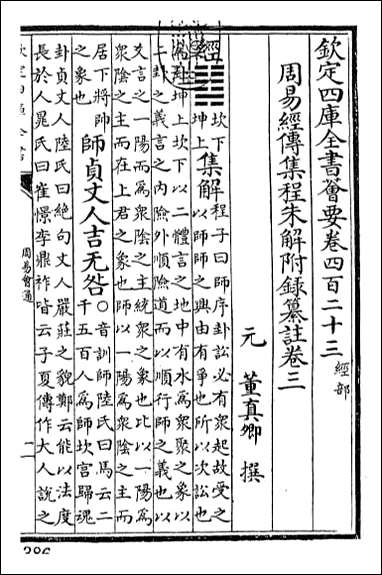 欽定四庫全書薈要卷四百二十三 經部
周易經傳集程朱解附録纂註卷三
元 董真卿 撰
經 坎下坤上 集解 程子曰師序卦訟必有衆起故受之
以師師之興由有爭也所以次訟也
為卦坤上坎下以二體言之地中有水為衆聚之象以
二卦之義言之内險外順險道而以順行師之義也以
爻言之一陽而為衆陰之主統衆之象也比以一陽為
衆陰之主而在上君之象也師以一陽為衆陰之主而
居下將帥之象也
師貞丈人吉无咎 ○音訓師陸氏曰馬云二千五百人為師坎宫歸魂
卦貞丈人陸氏曰絶句丈人嚴莊之貌鄭云能以法度
長於人晁氏曰崔憬李鼎祚皆云子夏傳作大人說之
周易會通
二